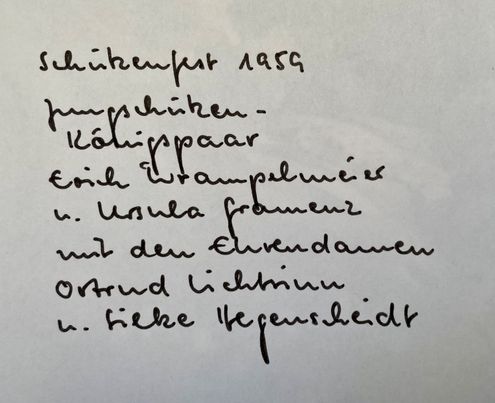 Schützenfest 1959
Jungschützen-
Königspaar
Erich Wrampelmeier
u. Ursula Gramenz
mit den Ehrendamen
Ortrud Lichtsinn
u. Sieke Hegenscheidt